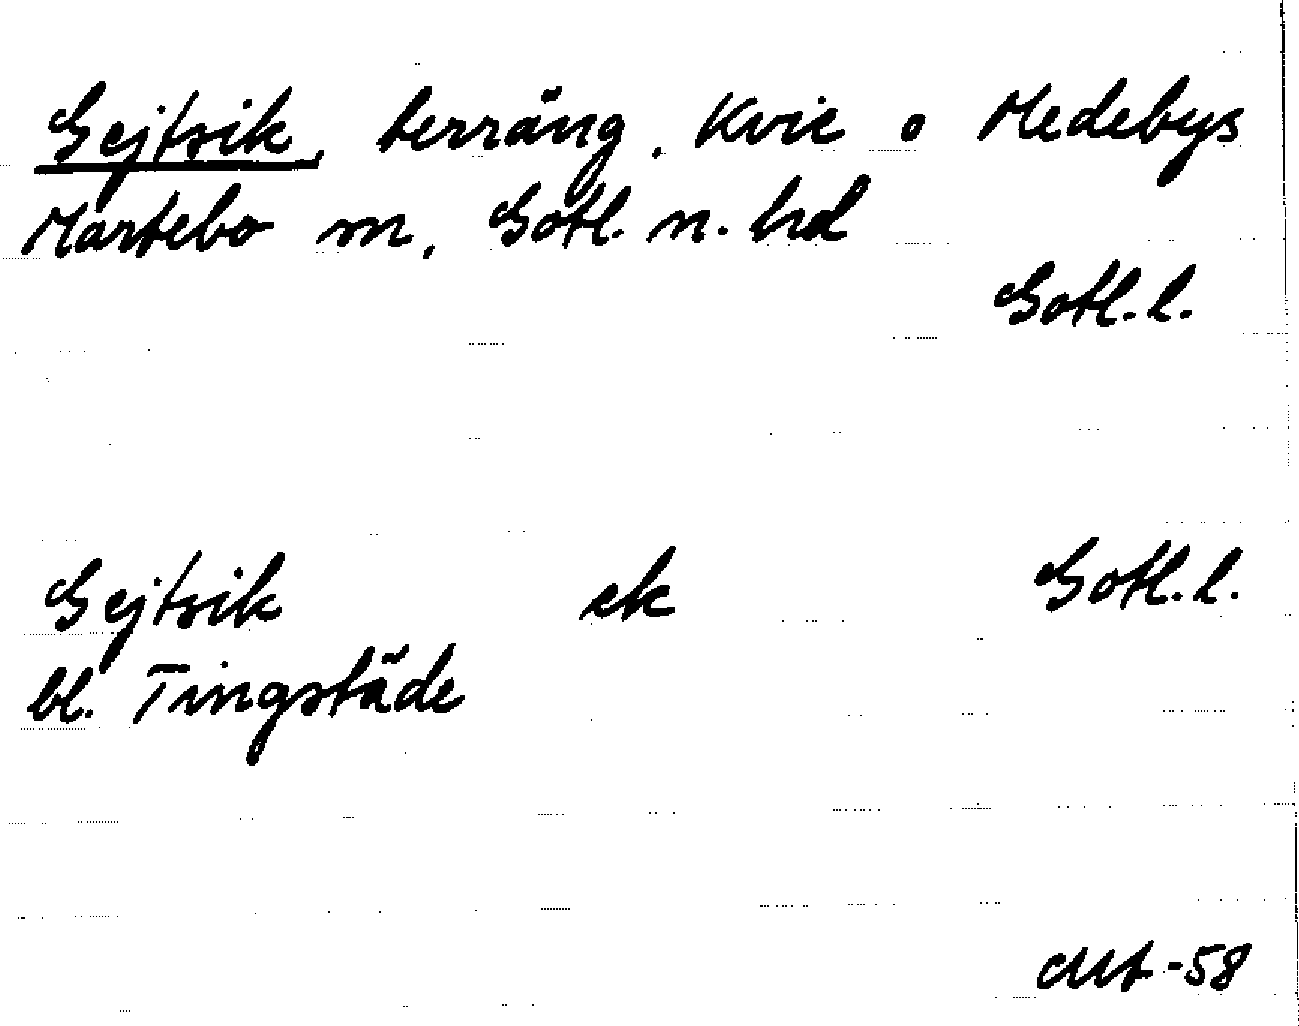 Gejtsik, terräng. Kvie o Medebys
Martebo sn, Gotl. n. hd
Gotl. l.
Gejtsik ek Gotl. l.
bl. Tingstäde
-58